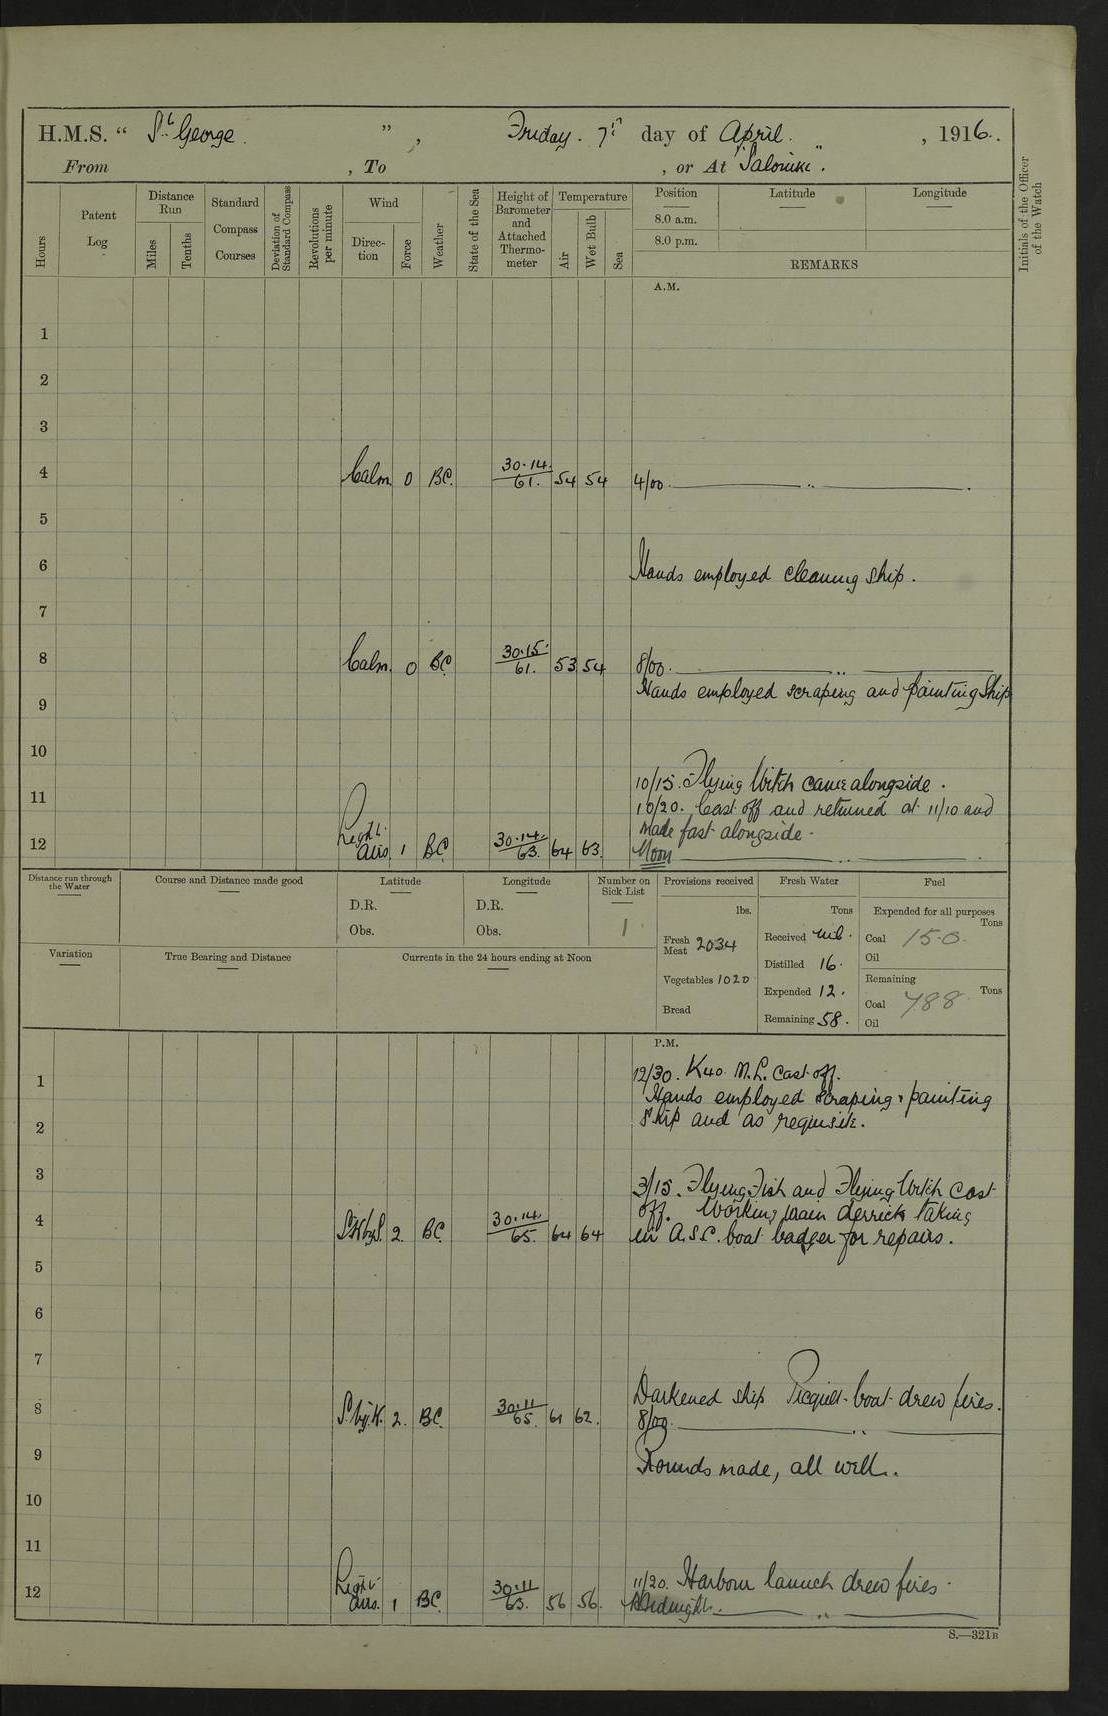 H.M.S. “ St George. ” , Friday. 7th day of April. , 1916.
From , To , or At "Salonika".
Hours
Patent Log
Distance Run
Miles
Tenths
Standard Compass Courses
Deviation of Standard Compass
Revolutions per minute
Wind
Direction
Force
Weather
State of the Sea
Height of Barometer and Attached Thermometer
Temperature
Air
Wet Bulb
Sea
Position
Latitude
Longitude
8.0 a.m.
8.0 p.m.
REMARKS
Initials of the Officer of the Watch
A.M.
1
2
3
4 Calm. 0 BC. 30.14. 61. 54 54 4/00. "
5
6 Hands employed cleaning ship.
7
8 Calm. 0 BC 30.15. 61. 53 54 8/00. "
Hands employed scraping and painting ship
9
10
10/15. Flying Witch came alongside.
11 10/20. Cast off and returned at 11/10 and
made fast alongside.
12 Light airs. 1 BC 30.14. 63. 64 63. Noon "
Distance run through the Water
Course and Distance made good
Latitude
D.R.
Obs.
Longitude
D.R.
Obs.
Number on Sick List
1
Provisions received
lbs.
Fresh Meat 2034
Vegetables 1020
Bread
Fresh Water
Tons
Received nil.
Distilled 16.
Expended 12.
Remaining 58.
Fuel
Expended for all purposes
Tons
Coal 15.0
Oil
Remaining
Tons
Coal 788
Oil
Variation
True Bearing and Distance
Currents in the 24 hours ending at Noon
P.M.
12/30. M.L. Cast off.
1 Hands employed scraping & painting
2 ship and as requisite.
3 3/15. Flying Fish and Flying Witch cast
off. Working main derrick taking
4 2. BC. 30.14. 65. 64 64 in A.S.C. boat badger for repairs.
5
6
7
Darkened ship Picquet boat drew fires.
8 2. BC. 30.11 65. 61 62. 8/00. "
9 Rounds made, all well.
10
11
11/20. Harbour launch drew fires.
12 Light airs. 1 BC. 30.11 63. 56 56. Midnight. "
S.—321B